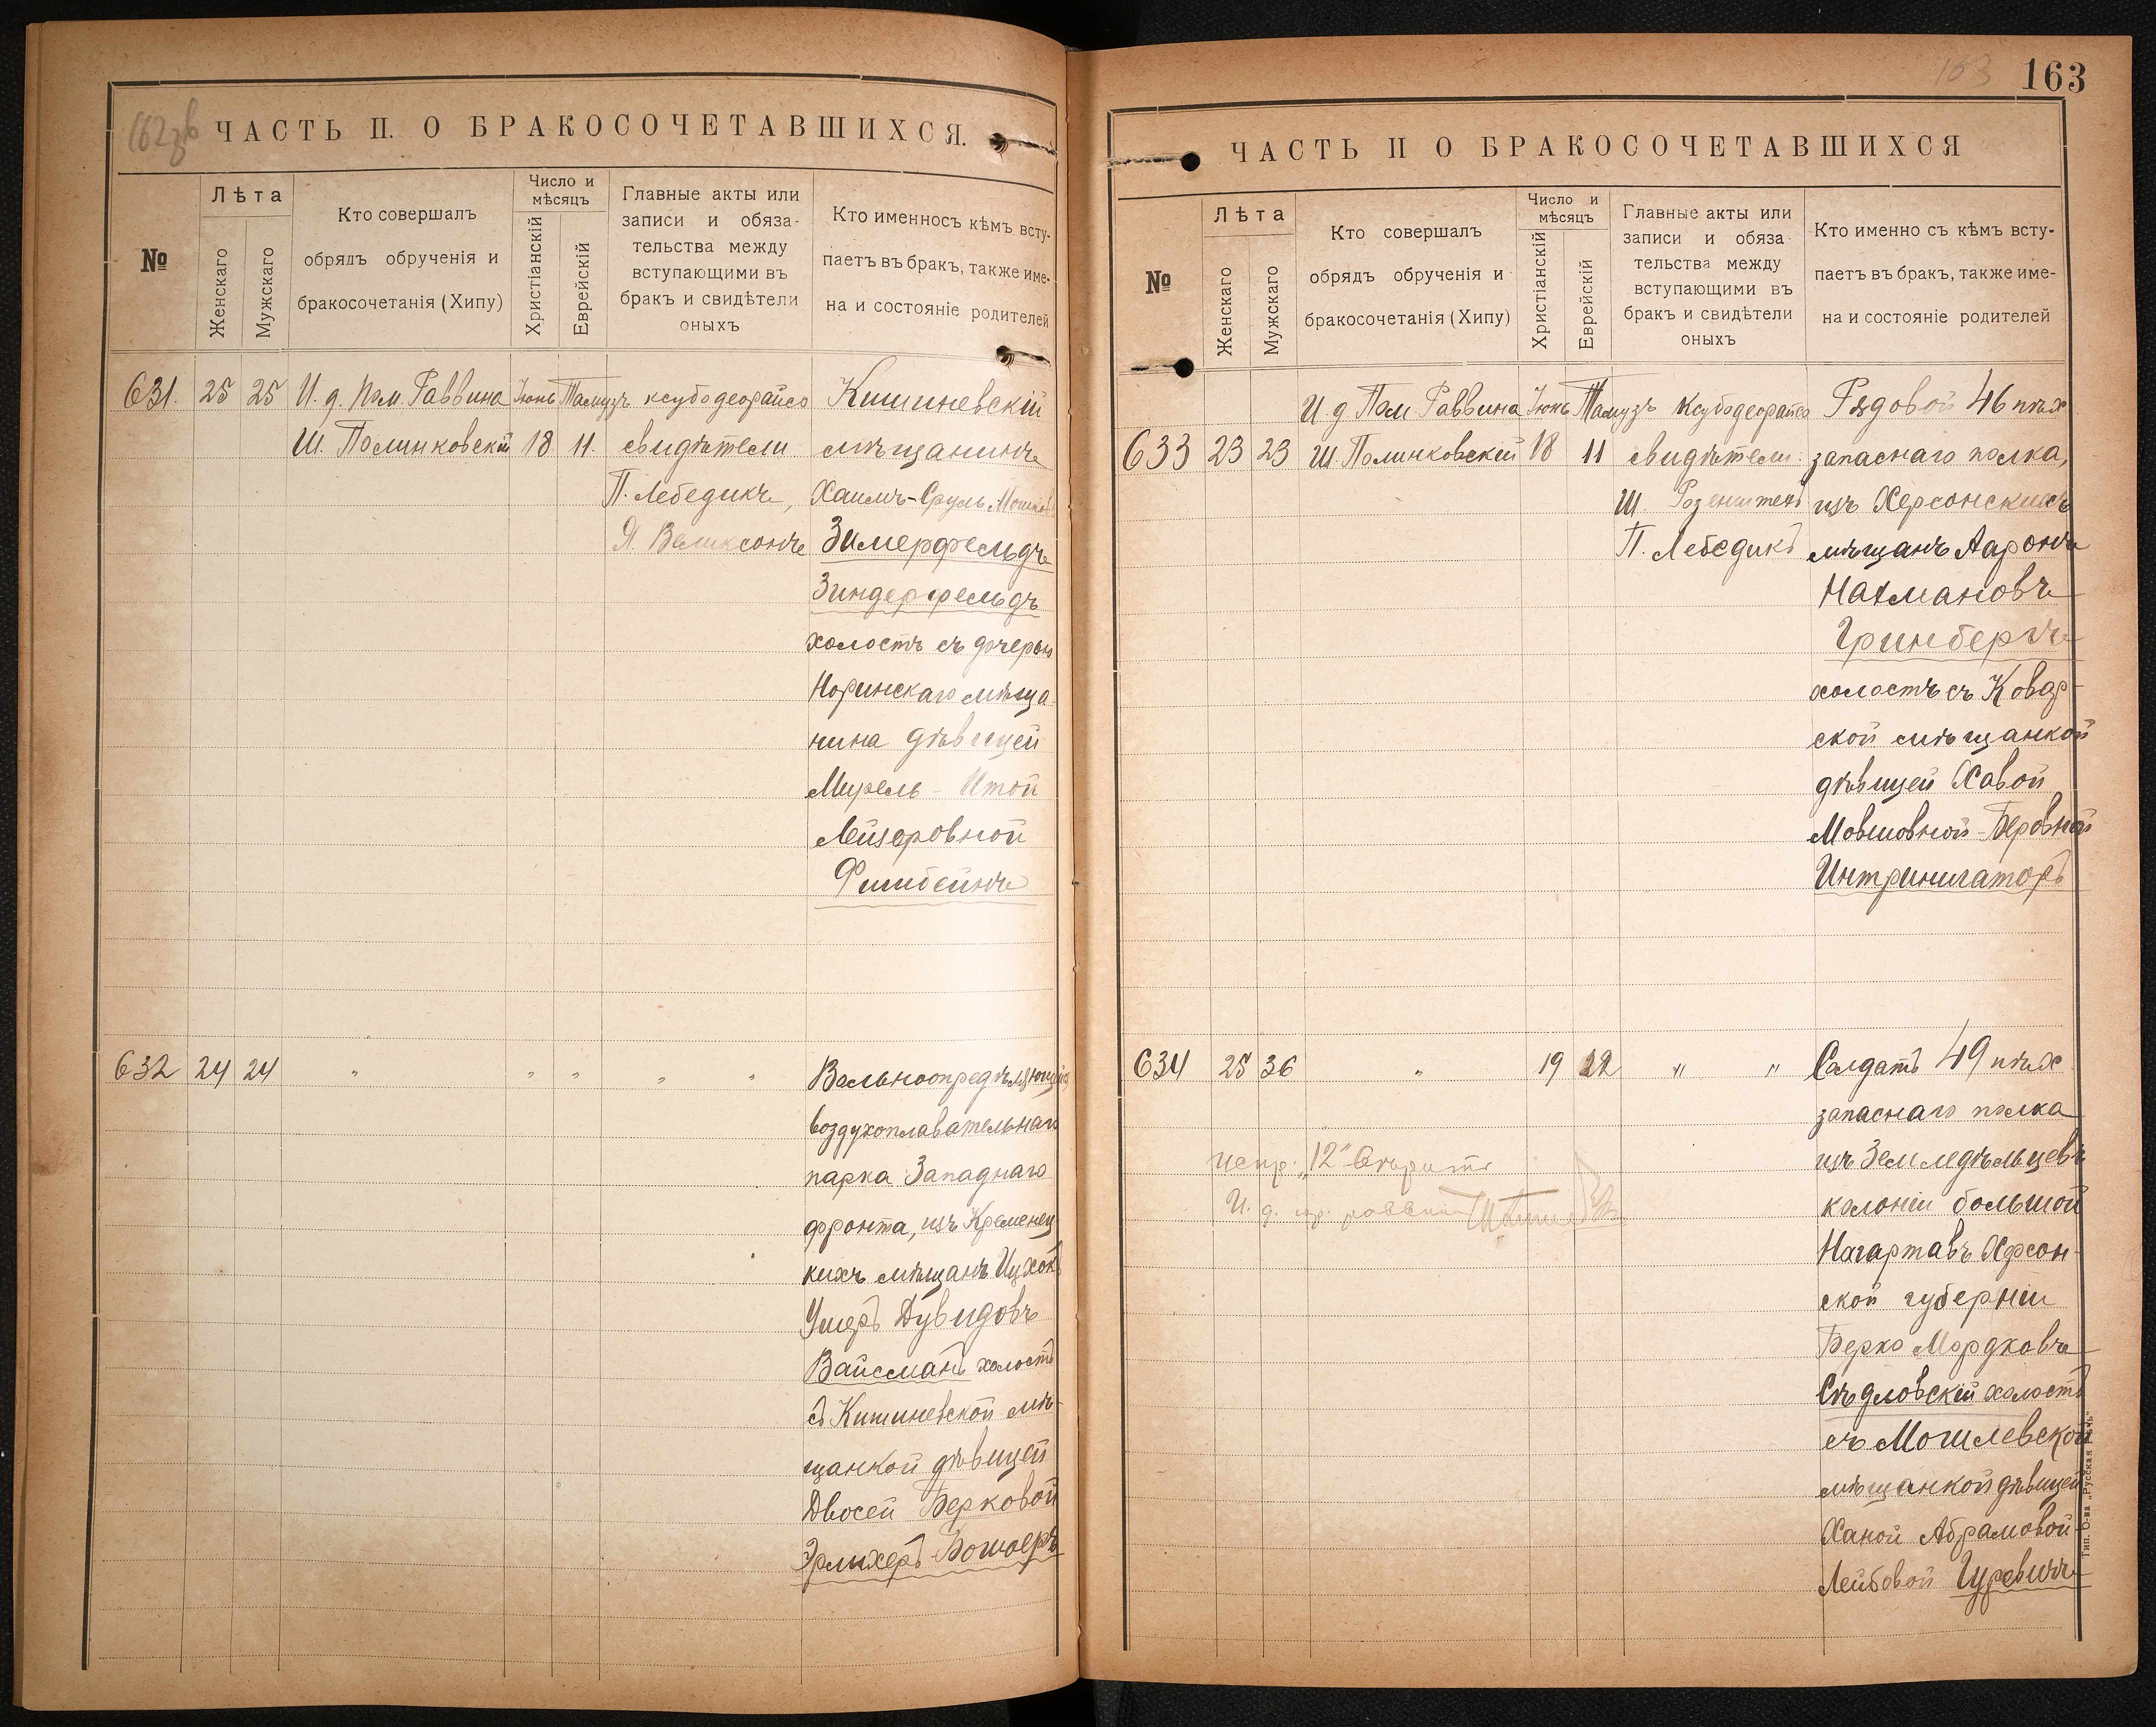 162 зв
ЧАСТЬ II. О БРАКОСОЧЕТАВШИХСЯ.
№
Лѣта
Женскаго
Мужскаго
Кто совершалъ
обрядъ обрученія и
бракосочетанія (Хипу)
Число и
мѣсяцъ
Христіанскій
Еврейскій
Главные акты или
записи и обяза-
тельства между
вступающими въ
бракъ и свидѣтели
оныхъ
Кто именносъ кѣмъ всту-
паетъ въ бракъ, также име-
на и состояніе родителей
631. 25 25 И. д. Пом. Раввина Іюнь Тамузъ ксубодеорайсо Кишиневскій
Ш. Полинковскій 18 11. свидѣтели мѣщанинъ
П. Лебедикъ, Хаимъ-Сруль
Зимерфельдъ
Зиндерфельдъ
холостъ съ дочерью
Норинскаго мѣща
нина дѣвицей
Мирель - Итой
Лейзеровной
Фишбейнъ
632 24 24 " " " " " Вольноопредѣляющійся
воздухоплавательнаго
парка Западнаго
фронта, изъ Кременец
кихъ мѣщанъ Ицхок
Ушеръ Дувидовъ
Вайсманъ холостъ
съ Кишиневской мѣ-
щанкой дѣвицей
Двосей Берковой
163
163
ЧАСТЬ II О БРАКОСОЧЕТАВШИХСЯ
№
Лѣта
Женскаго
Мужскаго
Кто совершалъ
обрядъ обрученія и
бракосочетанія (Хипу)
Число и
мѣсяцъ
Христіанскій
Еврейскій
Главные акты или
записи и обяза
тельства между
вступающими въ
бракъ и свидѣтели
оныхъ
Кто именно съ кѣмъ всту-
паетъ въ бракъ, также име-
на и состояніе родителей
И д Пом Раввина Іюнь Тамузъ ксубодеорайсо Рядовой 46 пѣх
633 23 23 Ш Полинковскій 18 11 свидѣтели: запаснаго полка,
Ш. Розенштейнъ изъ Херсонскихъ
П. Лебедикъ мѣщанъ Ааронъ
Нахмановъ
Гринбергъ
холостъ съ Ковар-
ской мѣщанкой
дѣвицей Хавой
Мовшовной-Беровной
Интрилигаторъ
634 25 36 " 19 12 " " Солдатъ 49 пѣх
запаснаго полка
испр. „12" изъ Земледѣльцевъ
И. д. колоніи большой
Нагартавъ Херсон-
ской губерніи
Берко Мордковъ
Сѣдловскій холостъ
съ Могилевской
мѣщанкой дѣвицей
Ханой Абрамовой-
Лейбовой Гуревичъ
Тип. О-ва „Русская Рѣчь"